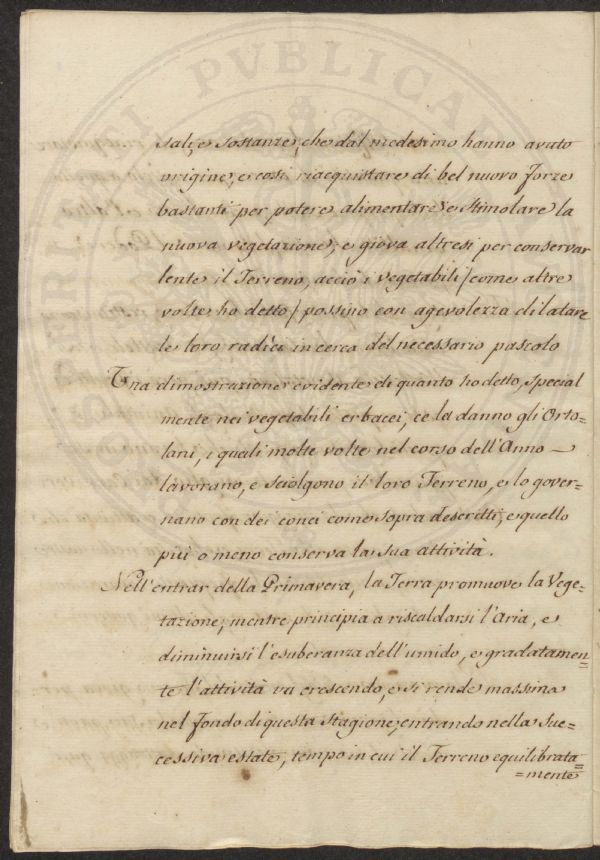 sali, e sostanze, che dal medesimo hanno avuto
origine, e così riacquistare di bel nuovo forze
bastanti per potere alimentare, e stimolare la
nuova vegetazione; e giova altresì per conservar
lente il Terreno, acciò i vegetabili /come altre
volte ho detto/ possino con agevolezza dilatare
le loro radici in cerca del necessario pascolo
Una dimostrazione evidente di quanto ho detto, special
mente nei vegetabili erbacei, ce la danno gli Orto=
lani, i quali molte volte nel corso dell'Anno –
lavorano, e sciolgono il loro Terreno, e lo gover=
nano con dei conci come sopra descritti, e quello
più o meno conserva la sua attività.
Nell'entrar della Primavera, la Terra promuove la Vege=
tazione, mentre principia a riscaldarsi l'Aria, e
diminuirsi l'esuberanza dell'umido, e gradatamen=
te l'attività va crescendo, e si rende massima
nel fondo di questa Stagione, entrando nella Suc=
cessiva estate, tempo in cui il Terreno equilibrata=
=mente
PVBLICAE